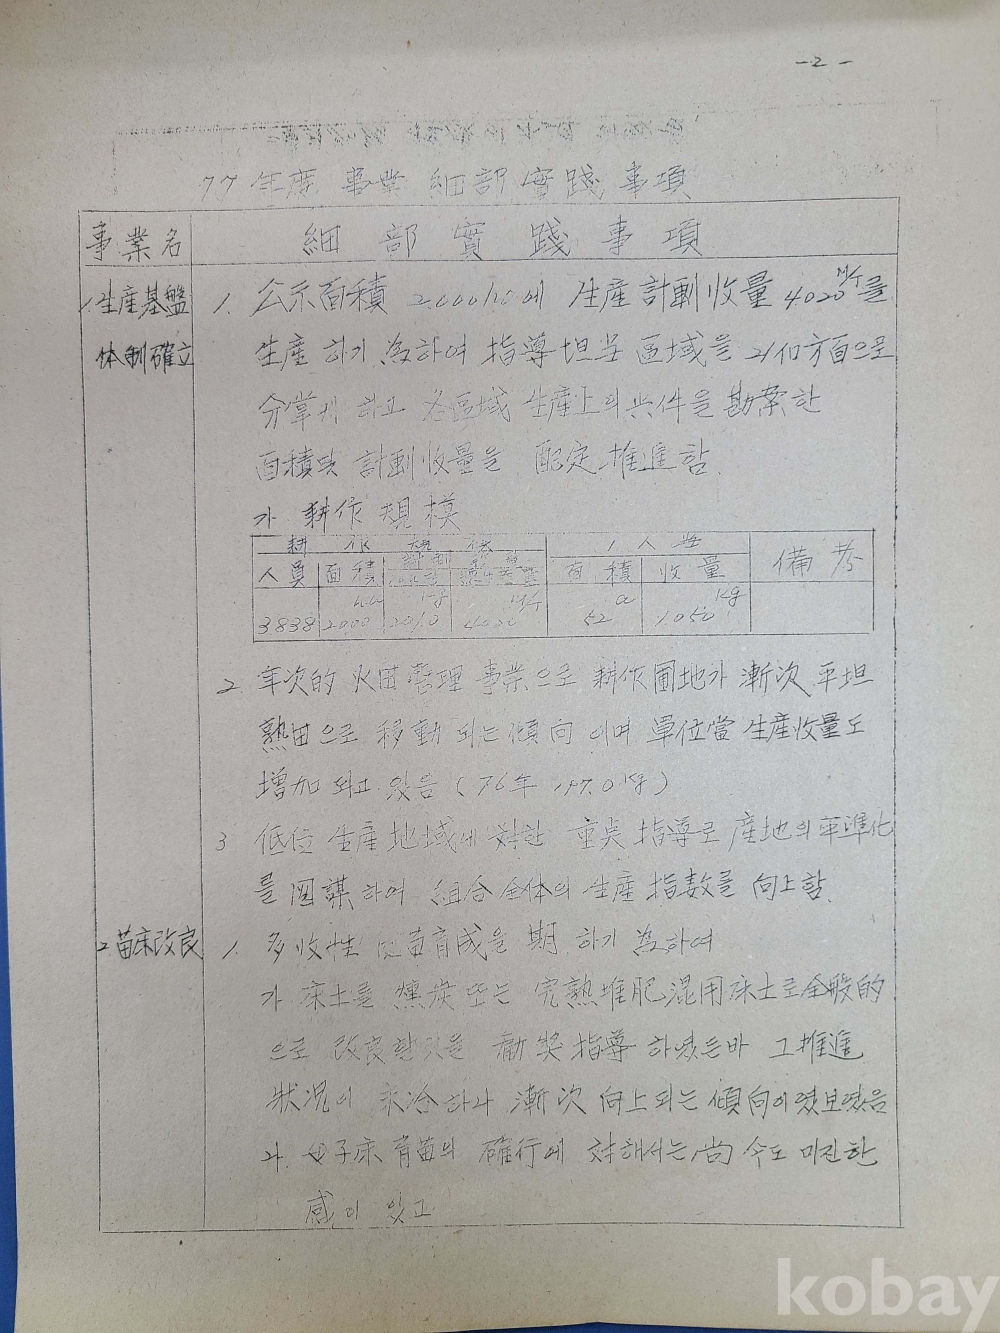 -2-
77年度 事業 細部實踐事項
事業名 細部實踐事項
1. 生産基盤 1. 公示面積 2.000ha에 生産計劃收量 4020M/T를
体制確立 生産하기 爲하여 指導担当 區域을 21個方面으로
分掌케 하고 各區域 生産上의 与件을 勘案한
面積및 計劃收量을 配定 推進함.
가 耕作規模
耕作規模 1人当 備考
人員 面積 計劃 面積 收量
ha kg M/T a kg
3838 2000 2010 4020 52 1050
2. 年次的 火田管理 事業으로 耕作圃地가 漸次 平坦
熟田으로 移動되는 傾向이며 單位當 生産收量도
增加되고 있음 (76年 197.0kg)
3 低位 生産地域에 対한 重点 指導로 産地의 平準化
를 図謀하여 組合全体의 生産指数를 向上함.
2. 苗床改良 1. 多收性 苗育成을 期하기 爲하여
가 床土를 燻炭 또는 完熟堆肥 混用床土로 全般的
으로 改良할것을 勸奬指導 하였는바 그 推進
狀況이 漸次 向上되는 傾向이 였음
나. 母子床 育苗의 確行에 対해서는 尙 今도 미진한
感이 있고
kobay